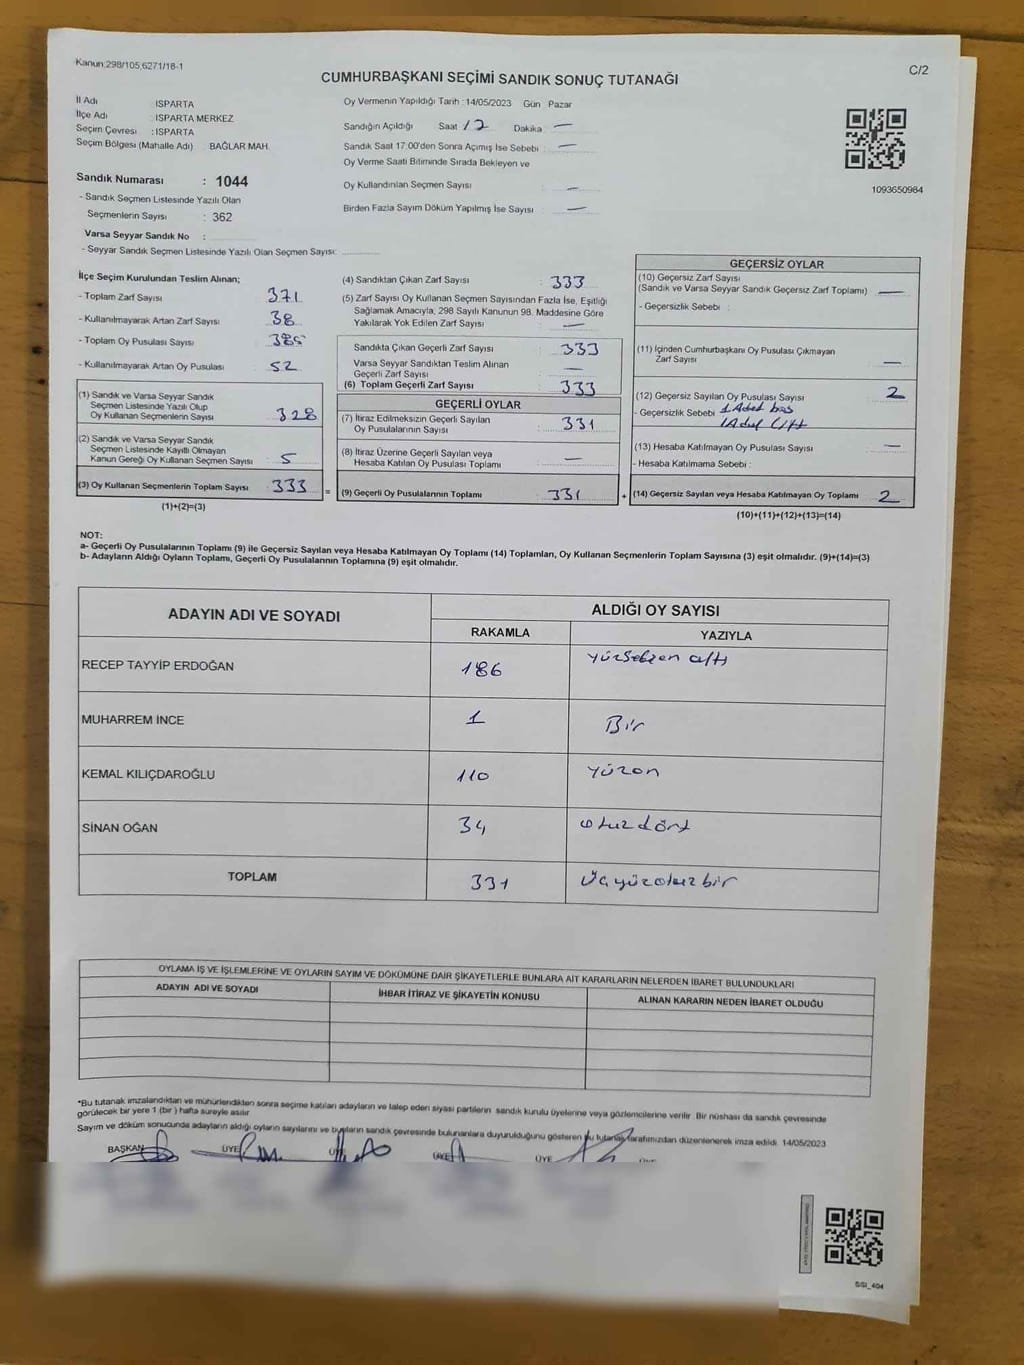 Kanun:298/105,6271/18-1
C/2
CUMHURBAŞKANI SEÇİMİ SANDIK SONUÇ TUTANAĞI
İl Adı : ISPARTA
İlçe Adı : ISPARTA MERKEZ
Seçim Çevresi : ISPARTA
Seçim Bölgesi (Mahalle Adı) BAĞLAR MAH.
Sandık Numarası : 1044
- Sandık Seçmen Listesinde Yazılı Olan
Seçmenlerin Sayısı : 362
Varsa Seyyar Sandık No :
- Seyyar Sandık Seçmen Listesinde Yazılı Olan Seçmen Sayısı:
Oy Vermenin Yapıldığı Tarih : 14/05/2023 Gün Pazar
Sandığın Açıldığı Saat 17 Dakika : —
Sandık Saat 17:00'den Sonra Açımış İse Sebebi : —
Oy Verme Saati Bitiminde Sırada Bekleyen ve
Oy Kullandırılan Seçmen Sayısı : —
Birden Fazla Sayım Döküm Yapılmış İse Sayısı : —
1093650984
İlçe Seçim Kurulundan Teslim Alınan;
- Toplam Zarf Sayısı 371
- Kullanılmayarak Artan Zarf Sayısı 38
- Toplam Oy Pusulası Sayısı 385
- Kullanılmayarak Artan Oy Pusulası 52
(1) Sandık ve Varsa Seyyar Sandık
Seçmen Listesinde Yazılı Olup
Oy Kullanan Seçmenlerin Sayısı : 328
(2) Sandık ve Varsa Seyyar Sandık
Seçmen Listesinde Kayıtlı Olmayan
Kanun Gereği Oy Kullanan Seçmen Sayısı : 5
(3) Oy Kullanan Seçmenlerin Toplam Sayısı : 333
(1)+(2)=(3)
(4) Sandıktan Çıkan Zarf Sayısı : 333
(5) Zarf Sayısı Oy Kullanan Seçmen Sayısından Fazla İse, Eşitliği
Sağlamak Amacıyla, 298 Sayılı Kanunun 98. Maddesine Göre
Yakılarak Yok Edilen Zarf Sayısı : —
Sandıkta Çıkan Geçerli Zarf Sayısı : 333
Varsa Seyyar Sandıktan Teslim Alınan
Geçerli Zarf Sayısı : —
(6) Toplam Geçerli Zarf Sayısı : 333
GEÇERLİ OYLAR
(7) İtiraz Edilmeksizin Geçerli Sayılan
Oy Pusulalarının Sayısı : 331
(8) İtiraz Üzerine Geçerli Sayılan veya
Hesaba Katılan Oy Pusulası Toplamı : —
= (9) Geçerli Oy Pusulalarının Toplamı : 331
GEÇERSİZ OYLAR
(10) Geçersiz Zarf Sayısı
(Sandık ve Varsa Seyyar Sandık Geçersiz Zarf Toplamı) —
- Geçersizlik Sebebi :
(11) İçinden Cumhurbaşkanı Oy Pusulası Çıkmayan
Zarf Sayısı : —
(12) Geçersiz Sayılan Oy Pusulası Sayısı : 2
- Geçersizlik Sebebi : 1 Adet boş
1 Adet Çift
(13) Hesaba Katılmayan Oy Pusulası Sayısı : —
- Hesaba Katılmama Sebebi :
+ (14) Geçersiz Sayılan veya Hesaba Katılmayan Oy Toplamı : 2
(10)+(11)+(12)+(13)=(14)
NOT:
a- Geçerli Oy Pusulalarının Toplamı (9) ile Geçersiz Sayılan veya Hesaba Katılmayan Oy Toplamı (14) Toplamları, Oy Kullanan Seçmenlerin Toplam Sayısına (3) eşit olmalıdır. (9)+(14)=(3)
b- Adayların Aldığı Oyların Toplamı, Geçerli Oy Pusulalarının Toplamına (9) eşit olmalıdır.
ADAYIN ADI VE SOYADI ALDIĞI OY SAYISI
RAKAMLA YAZIYLA
RECEP TAYYİP ERDOĞAN 186 yüzseksen altı
MUHARREM İNCE 1 Bir
KEMAL KILIÇDAROĞLU 110 yüzon
SİNAN OĞAN 34 otuzdört
TOPLAM 331 Üçyüzotuzbir
OYLAMA İŞ VE İŞLEMLERİNE VE OYLARIN SAYIM VE DÖKÜMÜNE DAİR ŞİKAYETLERLE BUNLARA AİT KARARLARIN NELERDEN İBARET BULUNDUKLARI
ADAYIN ADI VE SOYADI İHBAR İTİRAZ VE ŞİKAYETİN KONUSU ALINAN KARARIN NEDEN İBARET OLDUĞU
*Bu tutanak imzalandıktan ve mühürlendikten sonra seçime katılan adayların ve talep eden siyasi partilerin sandık kurulu üyelerine veya gözlemcilerine verilir. Bir nüshası da sandık çevresinde
görülecek bir yere 1 (bir) hafta süreyle asılır.
Sayım ve döküm sonucunda adayların aldığı oyların sayılarını ve bunların sandık çevresinde bulunanlara duyurulduğunu gösteren bu tutanak tarafımızdan düzenlenerek imza edildi. 14/05/2023
BAŞKAN ÜYE ÜYE ÜYE ÜYE ÜYE
SSI_404